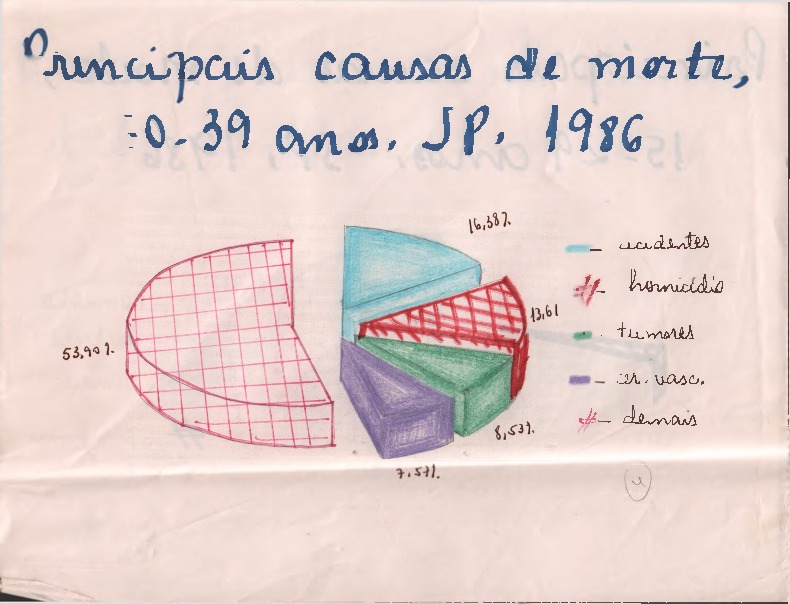 Principais causas de morte,
0-39 anos. JP. 1986
16,38%
acidentes
homicídio
13,61
tumores
53,90%
vasc.
demais
8,53%
7,57%
4